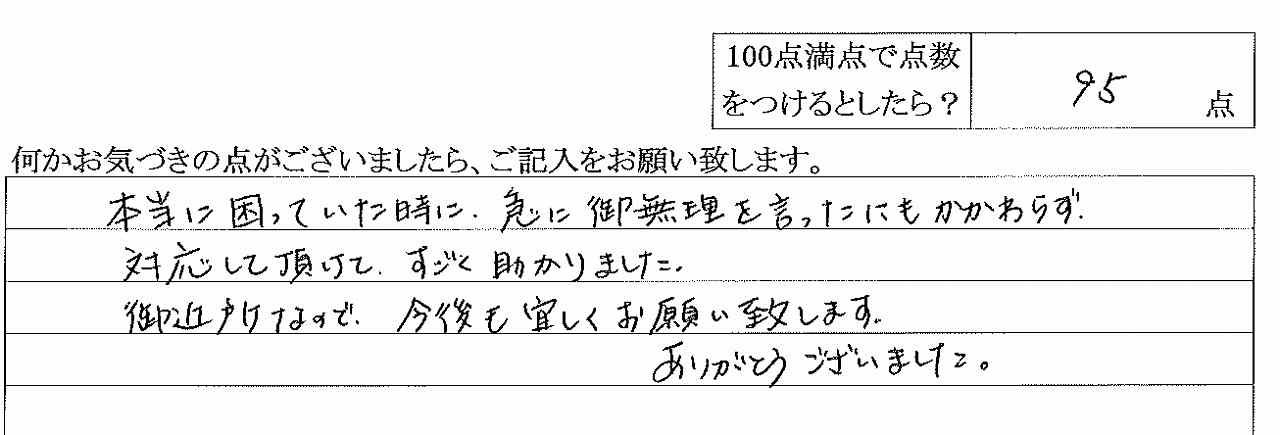 100点満点で点数
をつけるとしたら？
95 点
何かお気づきの点がございましたら、ご記入をお願い致します。
本当に困っていた時に、急に御無理を言ったにもかかわらず、
対応して頂けて、すごく助かりました。
御近所なので、今後も宜しくお願い致します。
ありがとうございました。